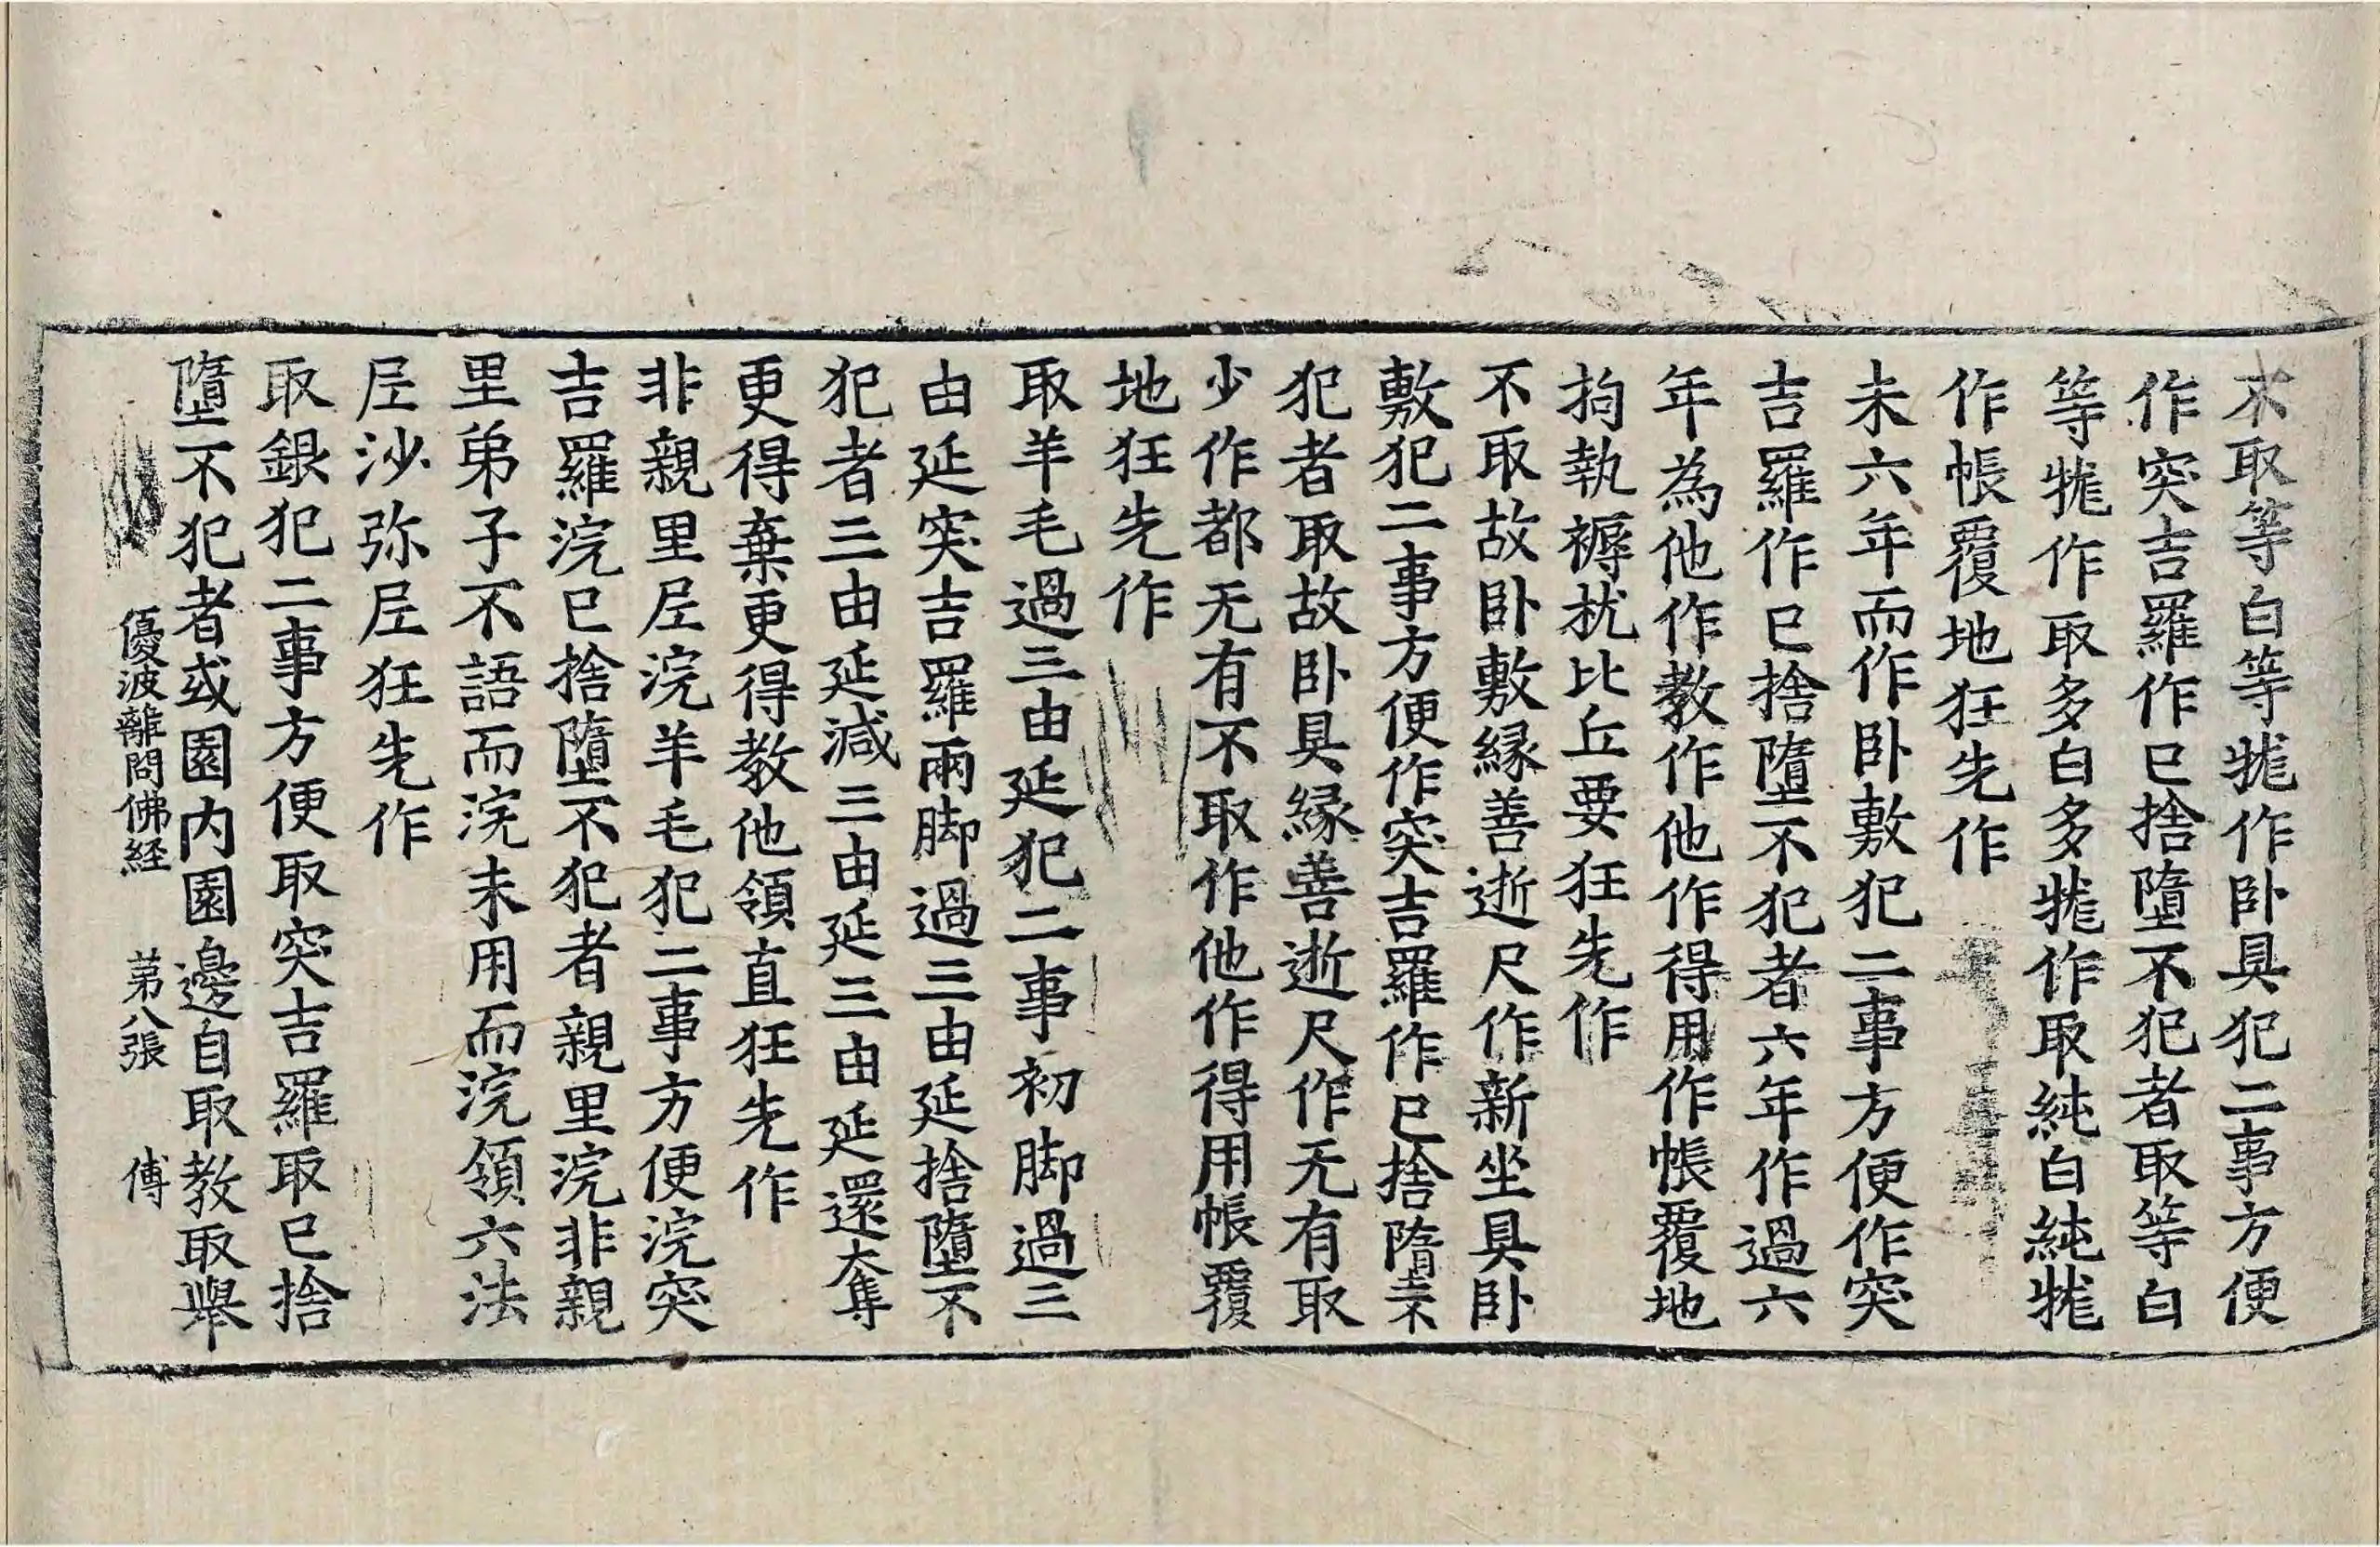 不取等白等㹊作卧具犯二事方便
作突吉羅作已捨墮不犯者取等白
等㹊作取多白多㹊作取純白純㹊
作帳覆地狂先作
未六年而作卧敷犯二事方便作突
吉羅作已捨墮不犯者六年作過六
年為他作教作他作得用作帳覆地
拘執褥枕比丘要狂先作
不取故卧敷縁善逝尺作新坐具卧
敷犯二事方便作突吉羅作已捨墮不
犯者取故卧具縁善逝尺作无有取
少作都无有不取作他作得用帳覆
地狂先作
取羊毛過三由延犯二事初脚過三
由延突吉羅兩脚過三由延捨墮不
犯者三由延減三由延三由延還奪
更得棄更得教他領直狂先作
非親里𡰱浣羊毛犯二事方便浣突
吉羅浣已捨墮不犯者親里浣非親
里弟子不語而浣未用而浣領六法
𡰱沙弥𡰱狂先作
取銀犯二事方便取突吉羅取已捨
墮不犯者或園内園邊自取教取舉
優波離問佛経 第八張 傅